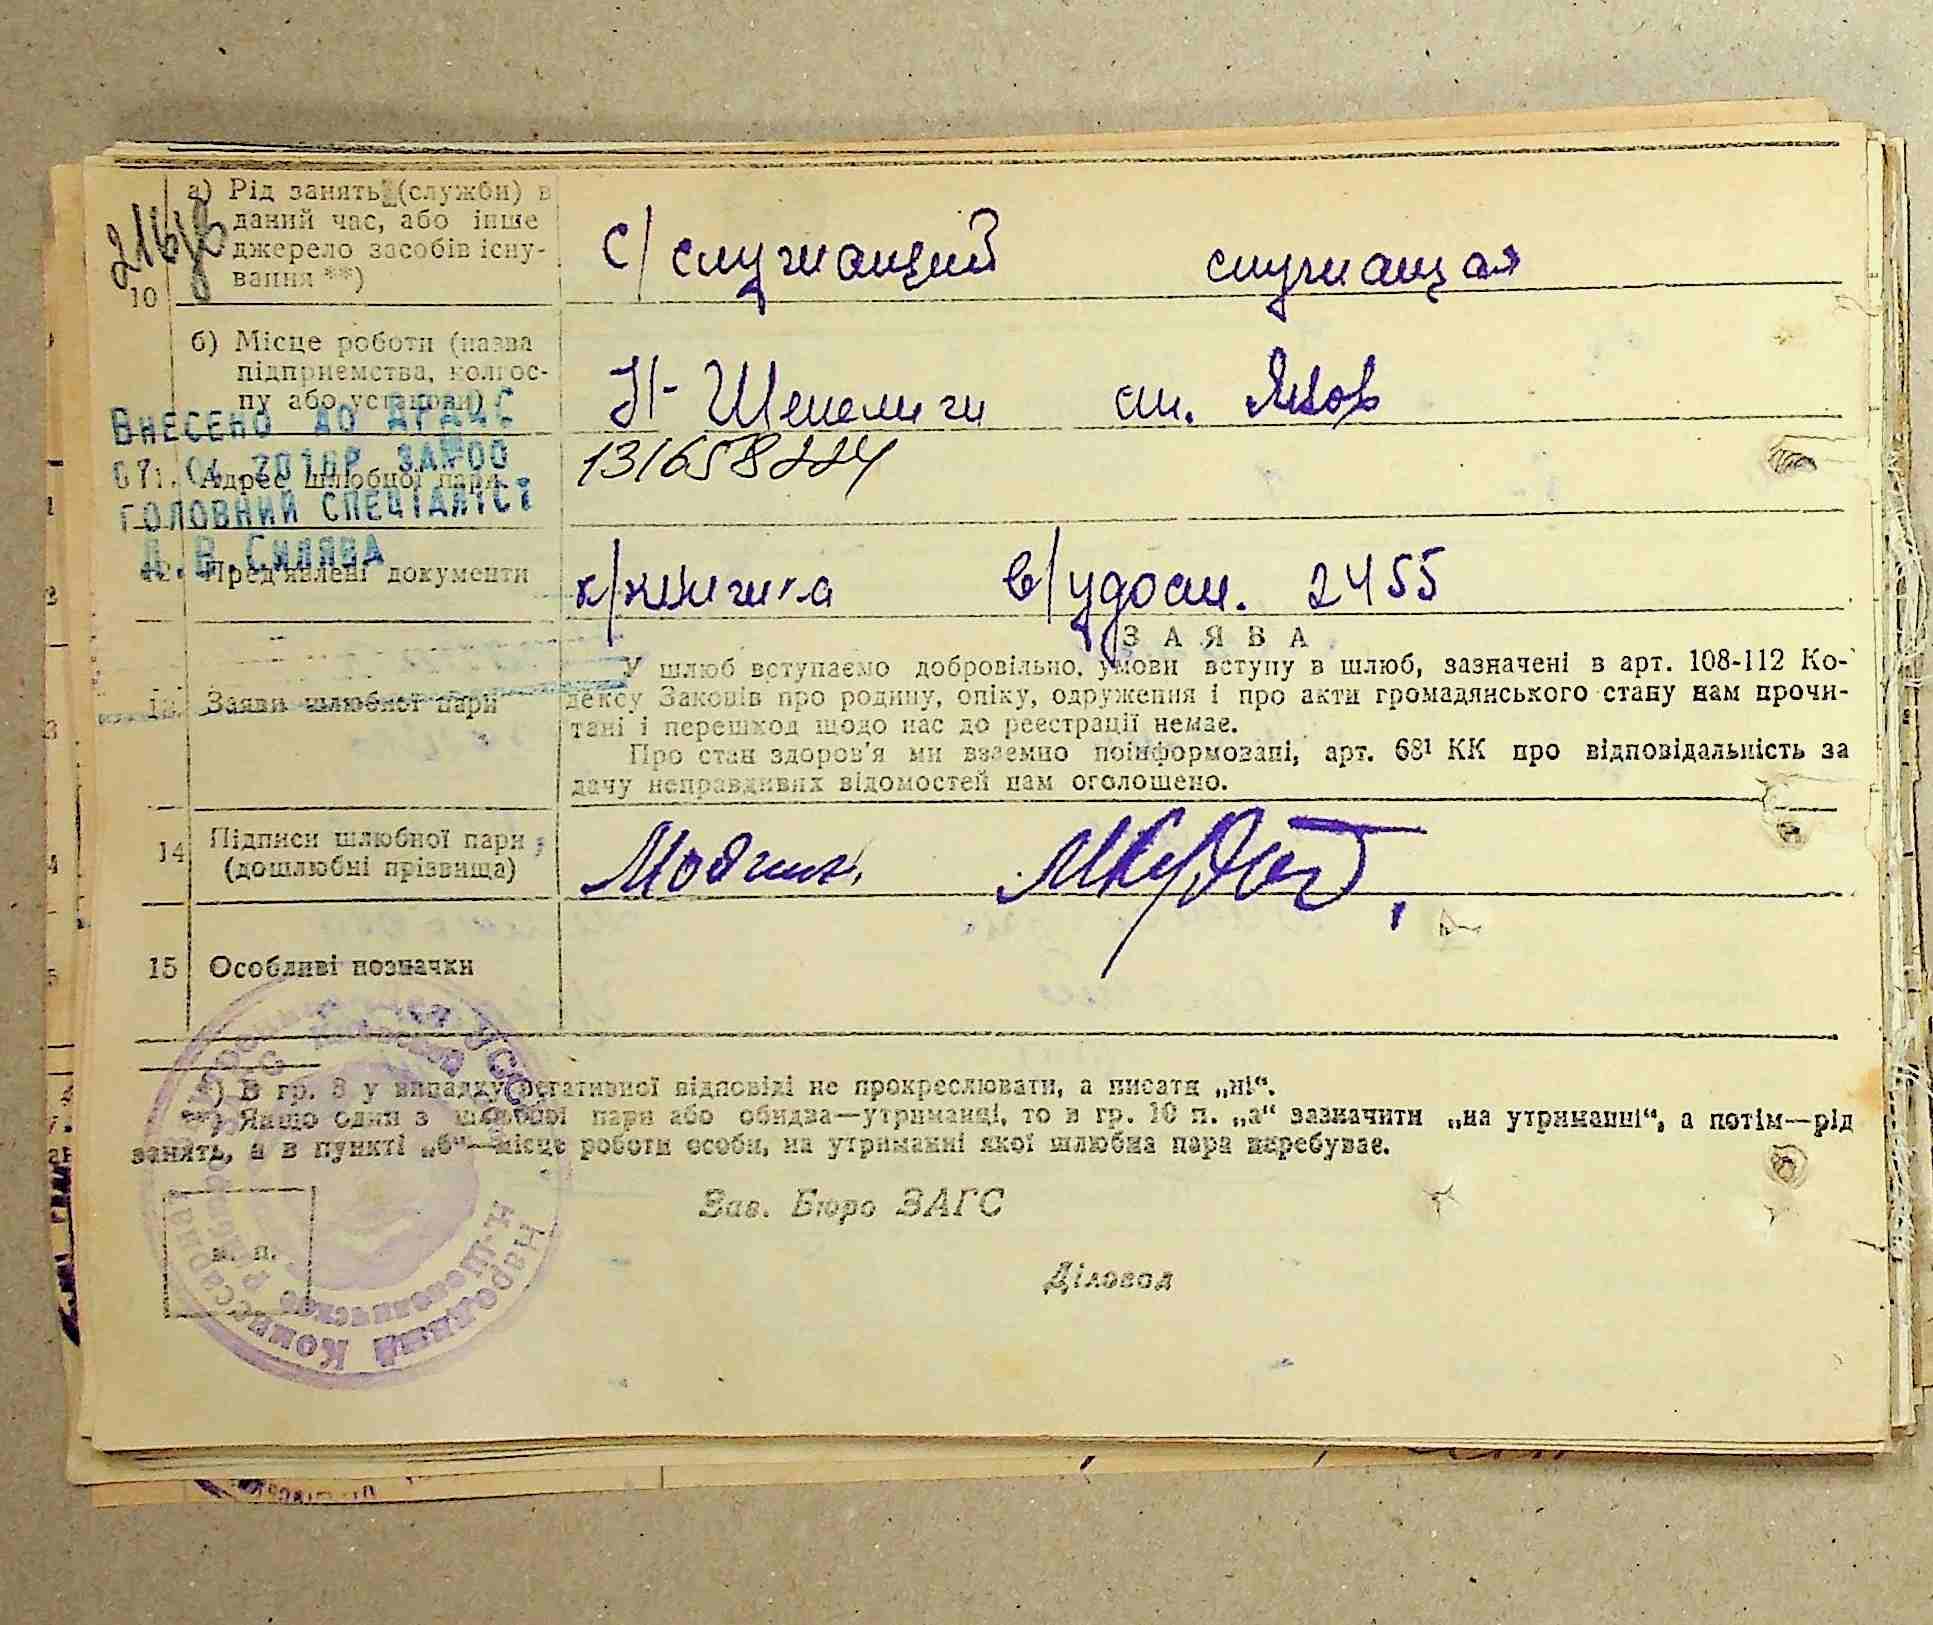 а) Рід занять (служби) в
даний час, або інше
джерело засобів існу-
вання **)
10
С/ служащий служащая
б) Місце роботи (назва
підприємства, колгос-
пу або установи)
Н-Шепеличи
131658224
Внесено до ДРАЦС
Адрес шлюбної пари
головний спеціаліст
12. Пред'явлені документи
в/удост. 2455
ЗАЯВА
У шлюб вступаємо добровільно, умови вступу в шлюб, зазначені в арт. 108-112 Ко-
дексу Законів про родину, опіку, одруження і про акти громадянського стану нам прочи-
тані і перешкод щодо нас до реєстрації немає.
Про стан здоров'я ми взаємно поінформовані, арт. 68¹ КК про відповідальність за
дачу неправдивих відомостей нам оголошено.
Заяви шлюбної пари
14 Підписи шлюбної пари
(дошлюбні прізвища)
15 Особливі позначки
*) В гр. 8 у випадку негативної відповіді не прокреслювати, а писати „ні“.
**) Якщо один з шлюбної пари або обидва—утриманці, то в гр. 10 п. „а“ зазначити „на утриманні“, а потім—рід
занять, а в пункті „б“—місце роботи особи, на утриманні якої шлюбна пара перебуває.
Зав. Бюро ЗАГС
м. п.
Діловод